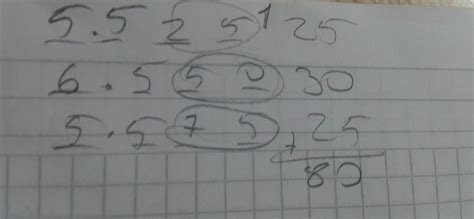 5.5 2 5 1 25
6.5 5 0 30
5.5 7 5 + 25
80